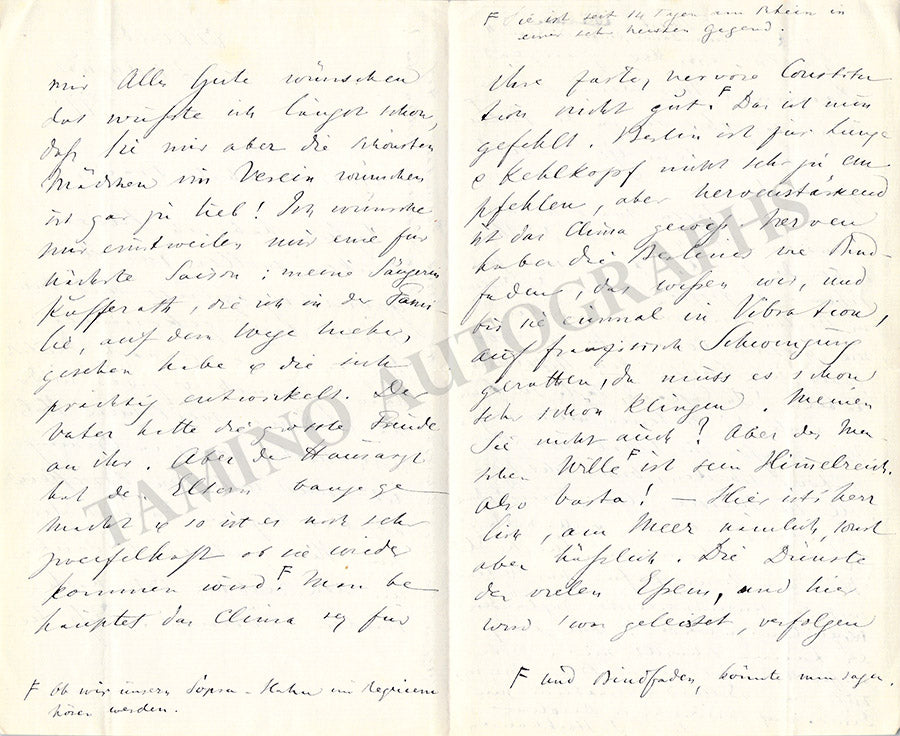 mir Alles Gute wünschen
das wußte ich längst schon,
daß Sie mir aber die schönsten
Mädchen im Verein wünschen
ist gar zu lieb! Ich wünsche
mir einstweilen nur eine für
nächste Saison: meine Sängerin
Kufferath, die ich in der Fami-
lie, auf dem Wege hieher,
gesehen habe & die sich
prächtig entwickelt. Der
Vater hatte die grösste Freude
an ihr. Aber der Hausarzt
hat den Eltern bange ge-
macht & so ist es noch sehr
zweifelhaft ob sie wieder
kommen wird. F Man be
hauptet das Clima sey für
F Ob wir unsern Sopran-Hahn im Requiem
hören werden.
F Sie ist seit 14 Tagen am Rhein in
einer sehr heissen Gegend.
ihre zarte, nervöse Constitu
tion nicht gut. F Das ist nun
gefehlt. Berlin ist für Lunge
& Kehlkopf nicht sehr zu em
pfehlen, aber nervenstärkend
ist das Clima gewiss. Nerven
haben die Berliner wie Bind-
faden, das wissen wir, und
bis sie einmal in Vibration,
auf französisch Schwingung
gerathen, da muss es schon
sehr schön klingen. Meinen
Sie nicht auch? Aber des Men
schen Wille F ist sein Himelreich.
also basta! — Hier ist's herr
lich, am Meer nämlich, sonst
aber häßlich. Die Dünste
des vielen Essens, und hier
wird 'was geleistet, verfolgen
F und Bindfaden, könnte man sagen.
TAMINO AUTOGRAPHS